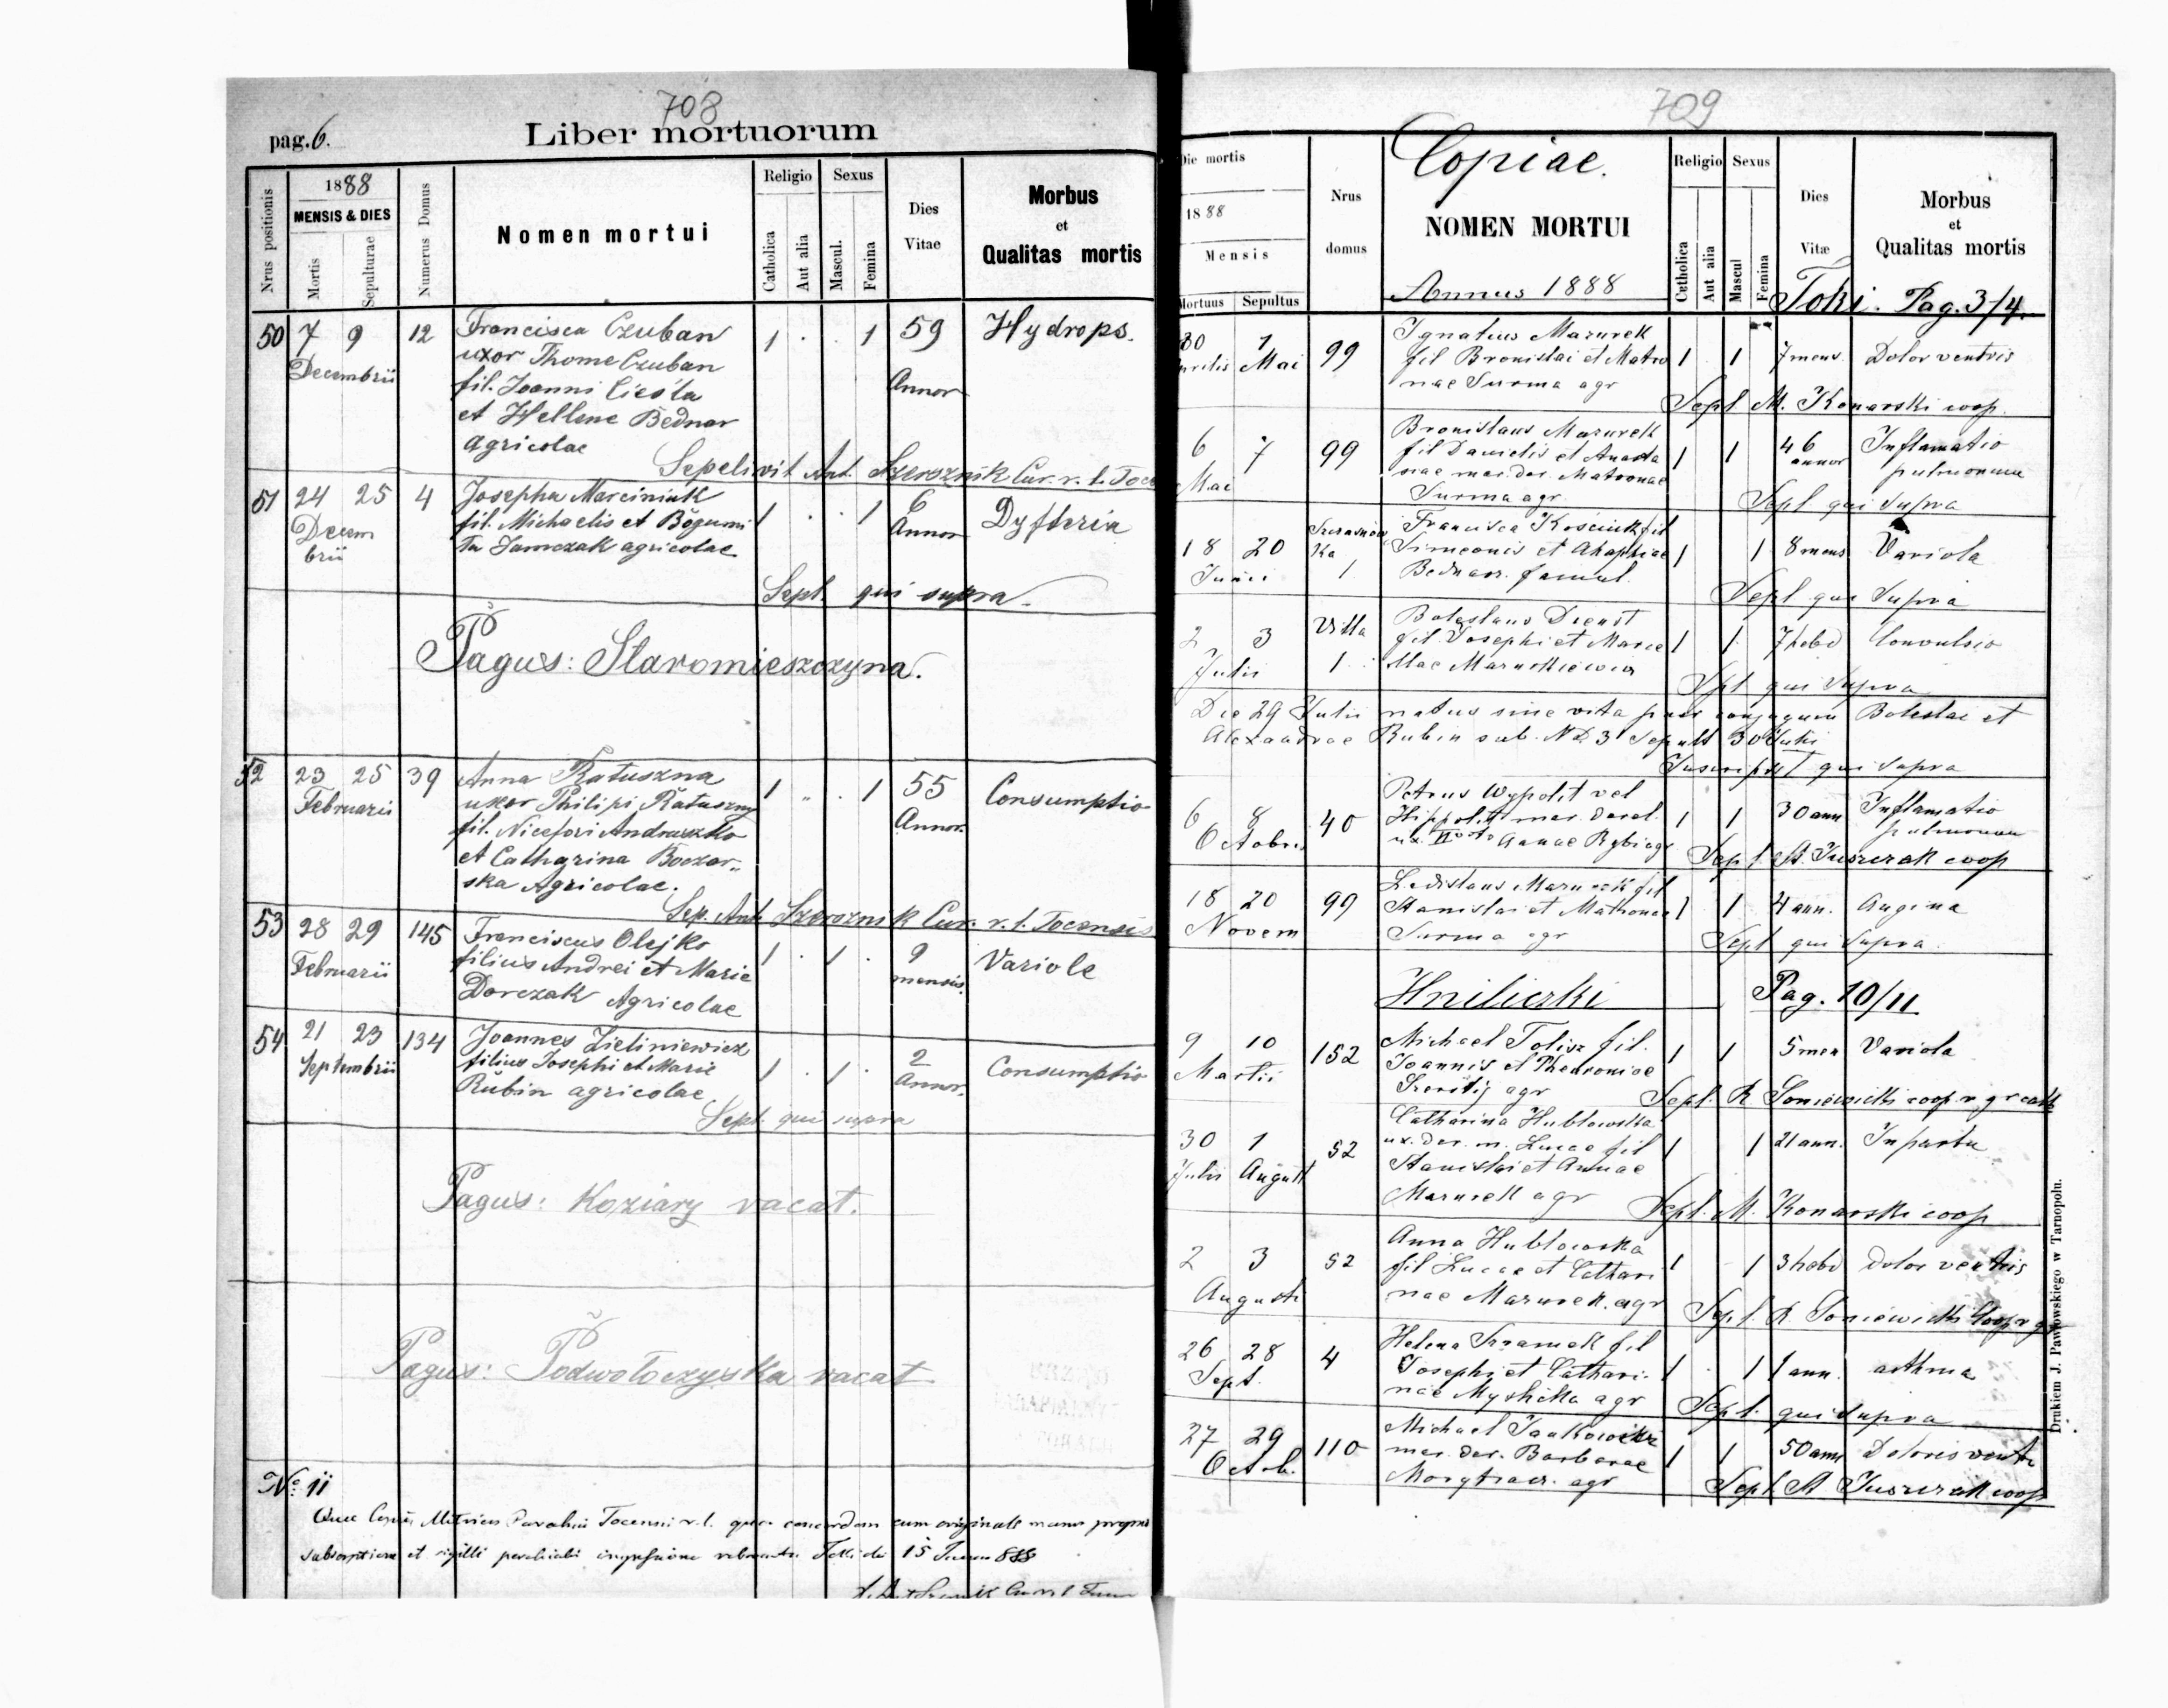 708
pag. 6.
Liber mortuorum
Nrus positionis
1888
MENSIS & DIES
Mortis
Sepulturae
Numerus Domus
Nomen mortui
Religio
Catholica
Aut alia
Sexus
Mascul.
Femina
Dies
Vitae
Morbus
et
Qualitas mortis
50 7 9 12 Francisca Czuban 1 . . 1 59 Hydrops.
Decembrii uxor Thome Czuban
fil. Joanni Cieśla Annor
et Hellene Bednar
agricolae
Sepelivit Ant. Szeroznik Cur. r. l.
51 24 25 4 Josepha Marciniuk 1 . . 1 6 Dyfteria
Decem fil. Michaelis et Bogumi Annor
brii ła Jamczak agricolae
Sepl. qui supra.
Pagus: Staromieszczyna.
52 23 25 39 Anna Ratuszna 1 " . 1 55 Consumptio
Februarii uxor Philipi Ratuszny Annor.
fil. Nicefori Andruszko
et Catharina Boczar„
ska Agricolae.
Sep. Ant. Szeroznik Cur. r. l. Tocensis
53 28 29 145 Franciscus Olejko 1 . 1 . 9 Variole
Februarii filius Andrei et Marie mensis.
Dorczak Agricolae
54 21 23 134 Joannes Zieliniewicz 1 . 1 . 2 Consumptio
Septembrii filius Josephi et Marie Annor.
Rubin agricolae
Sept. qui supra
Pagus: Koziary vacat.
Pagus: Podwołoczyska vacat
No. 11
concordam cum originali manu propria
subscriptione et sigilli parochialis 15
709
Copiae.
Die mortis
1888
Mensis
Mortuus Sepultus
Nrus
domus
NOMEN MORTUI
Annus 1888
Religio
Catholica
Aut alia
Sexus
Mascul
Femina
Dies
Vitæ
Morbus
et
Qualitas mortis
Toki. Pag. 3/4.
30 1 99 Ignatius Mazurek 1 1 7 mens. Dolor ventris
Aprilis Mai fil Bronislai et Matro
nae Surma agr
Sepl M. Konarski coop.
6 7 99 Bronislaus Mazurek 1 1 46 Inflamatio
Mai fil Danielis et Anasta annor pulmonum
siae mar. der. Matronae
Surma agr.
Sepl qui supra
18 20 1 Francisca Kosciuk fil 1 1 8 mens Variola
Junii Simeonis et Ahaphiae
Bednarz. famul.
Sepl qui supra
2 3 Villa Boleslaus Dienst 1 1 7 hebd Convulsio
Julii 1 fil. Josephi et Marce
llae Maruszkiewicz
Spl qui supra
Die 29 Julii natus sine vita puer conjugum Boleslai et
Alexandrae Rubin sub. No 3 Sepult 30 Julii
qui supra
6 8 40 Petrus Wypolit vel 1 1 30 ann Inflamatio
Octobris Hippolit mar. derel. pulmonum
ux. IIo voto Annae Rybi agr
Sepl. A. Juszczak coop
18 20 99 Ladislaus Mazurek fil 1 1 4 ann. Angina
Novem Stanislai et Mathronae
Surma agr
Sepl qui supra.
Hniliczki Pag. 10/11.
9 10 152 Michael Tolisz fil. 1 1 5 men Variola
Martii Joannis et Pheuroniae
agr
Sepl. R Soniewicki coop r. gr cath
30 1 52 Catharina Hublowska 1 1 21 ann. In partu
Julii August ux. der. m. Lucae fil
Stanislai et Annae
Mazurek agr
Sepl. M. Konarski coop
2 3 52 Anna Hublowska 1 1 3 hebd dolor ventris
Augusti fil Lucae et Cathari
nae Mazurek. agr
Sepl. R Soniewicki Coop r g
26 28 4 Helena Szramek fil 1 1 1 ann. asthma
Sept. Josephi et Cathari-
nae Myshcka agr
Sepl. qui supra
27 29 110 Michael Jankowicz 1 1 50 ann Doloris ventr
Octob. mar. der. Barbarae
agr
Sepl. A Juszczak coop
Drukiem J. Pawłowskiego w Tarnopolu.